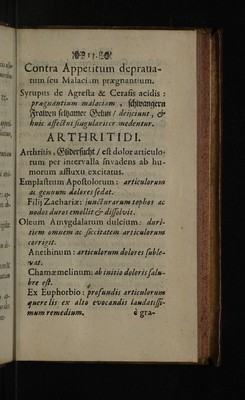 13.
Contra Appetitum deprauatum
tum seu Malaciam prægnantium.
Syrupus de Agresta & Cerasis acidis:
prægnantium malaciam, schwangern
Frawen seltzamer Gelus / deijciunt, &
huic affectui singulariter medentur.
ARTHRITIDI.
Arthritis, Glidersucht / est dolor articulo-
rum per intervalla invadens ab hu-
morum affluxu excitatus.
Emplastrum Apostolorum: articulorum
ac genuum dolores sedat.
Filij Zachariæ: juncturarum tophos ac
nodos duros emollit & dissolvit.
Oleum Amygdalarum dulcium: duri-
tiem omnem ac siccitatem articulorum
corrigit.
Anethinum: articulorum dolores suble-
vat.
Chamæmelinum: ab initio doloris salu-
bre est.
Ex Euphorbio: profundis articulorum
querelis ex alto evocandis laudatissi-
mum remedium. è gra-